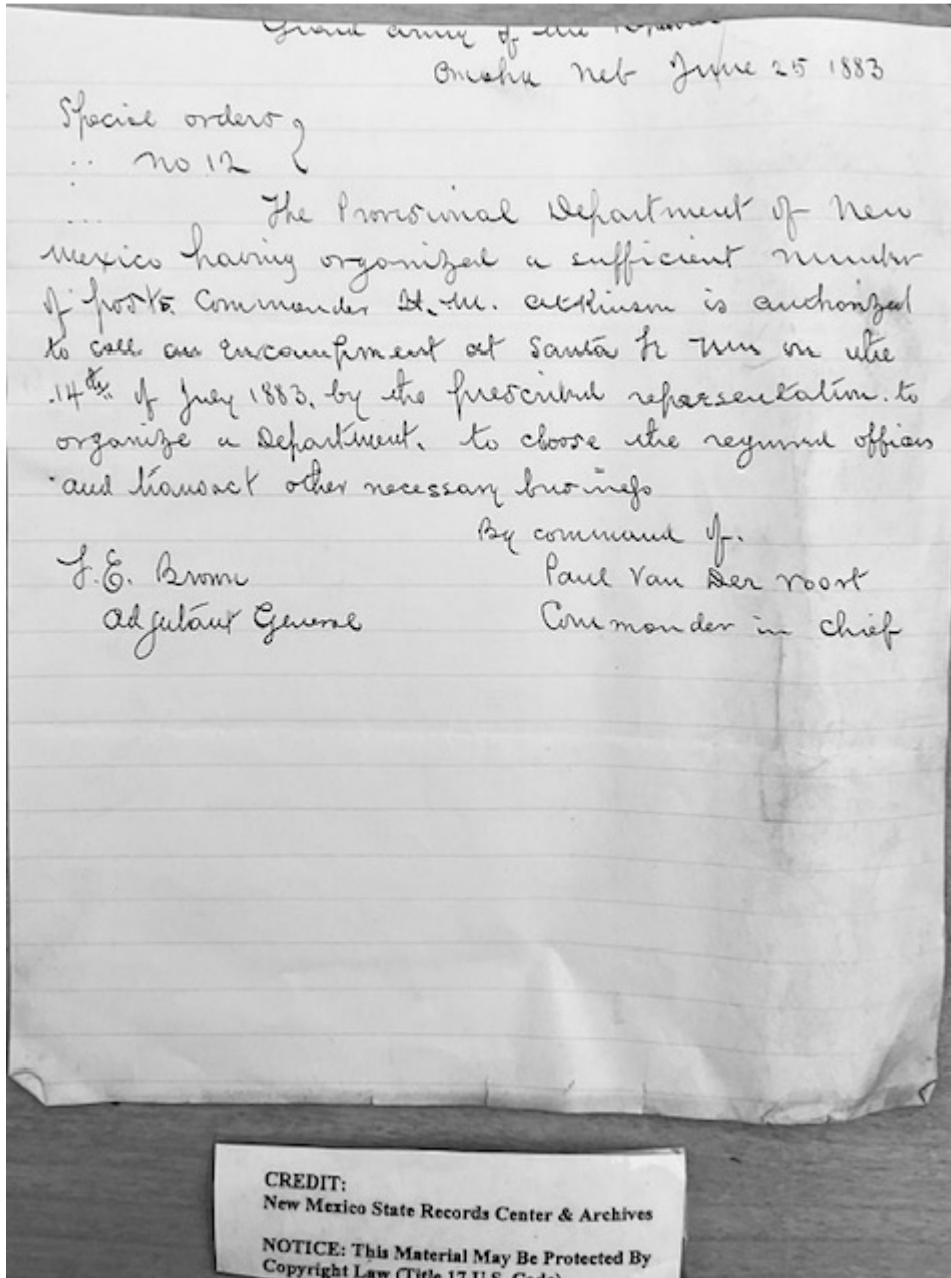 Grand army of the
Omaha Neb June 25 1883
Special orders
no 12
The Provisional Department of New
Mexico having organized a sufficient number
of posts. Commander H. M. Atkinson is authorized
to call an Encampment at Santa Fe on the
14th of July 1883, by the prescribed representation. to
organize a Department, to choose the required officers
and transact other necessary business
By command of.
F. E. Brown
Paul Van Der Voort
Adjutant General
Commander in chief
CREDIT:
New Mexico State Records Center & Archives
NOTICE: This Material May Be Protected By
Copyright Law (Title 17 U.S. Code)